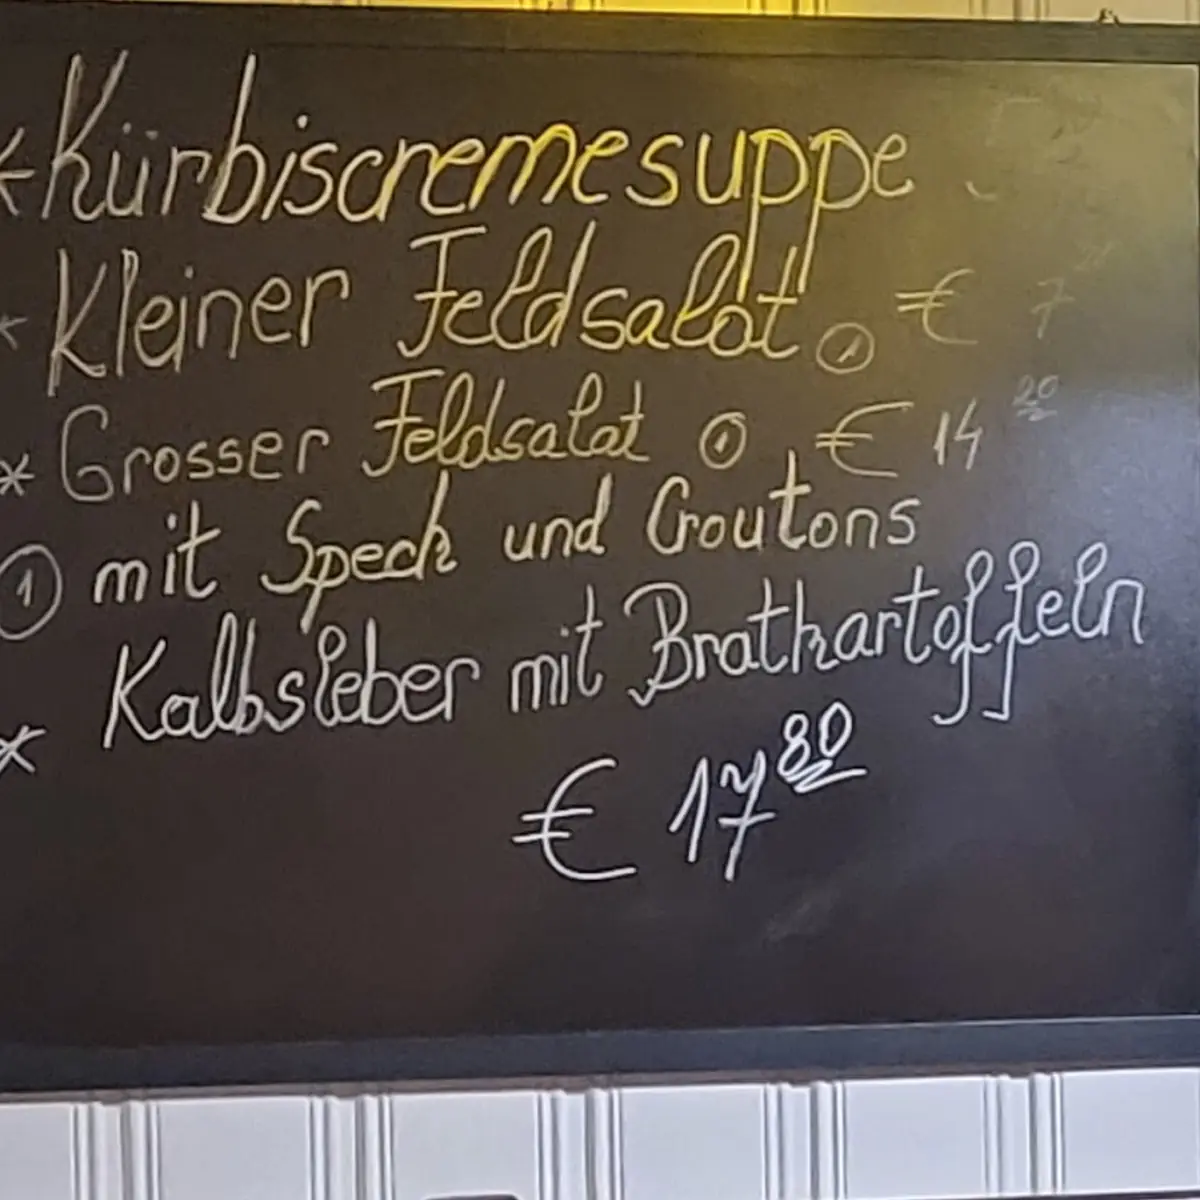 * Kürbiscremesuppe
* Kleiner Feldsalat ① € 7
* Grosser Feldsalat ① € 14 20
① mit Speck und Croutons
* Kalbsleber mit Bratkartoffeln
€ 17 80